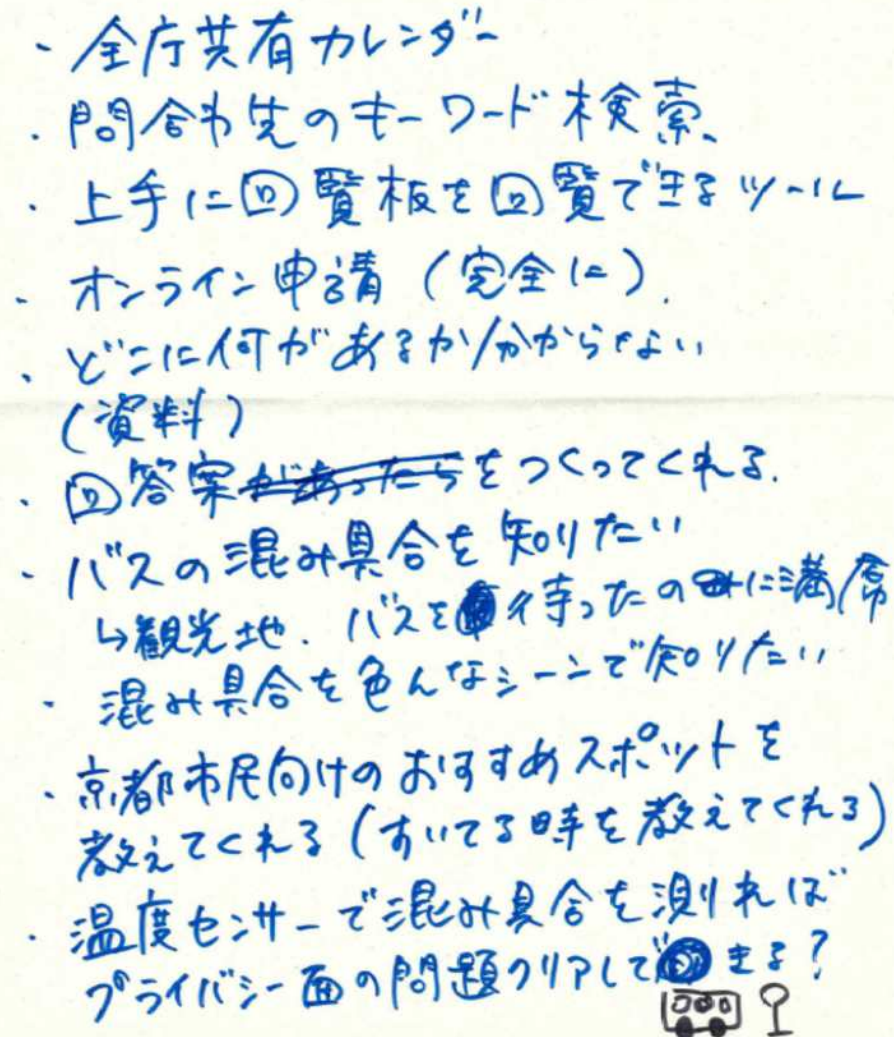 ・全庁共有カレンダー
・問合わ先のキーワード検索、
・上手に回覧板を回覧できるツール
・オンライン申請(完全に).
・どこに何があるか分からない
(資料)
・回答案があったらをつくってくれる.
・バスの混み具合を知りたい
↳観光地. バスを待ったのに満席
・混み具合を色んなシーンで知りたい
・京都市民向けのおすすめスポットを
教えてくれる(すいてる時を教えてくれる)
・温度センサーで混み具合を測れば
プライバシー面の問題クリアしてきる?